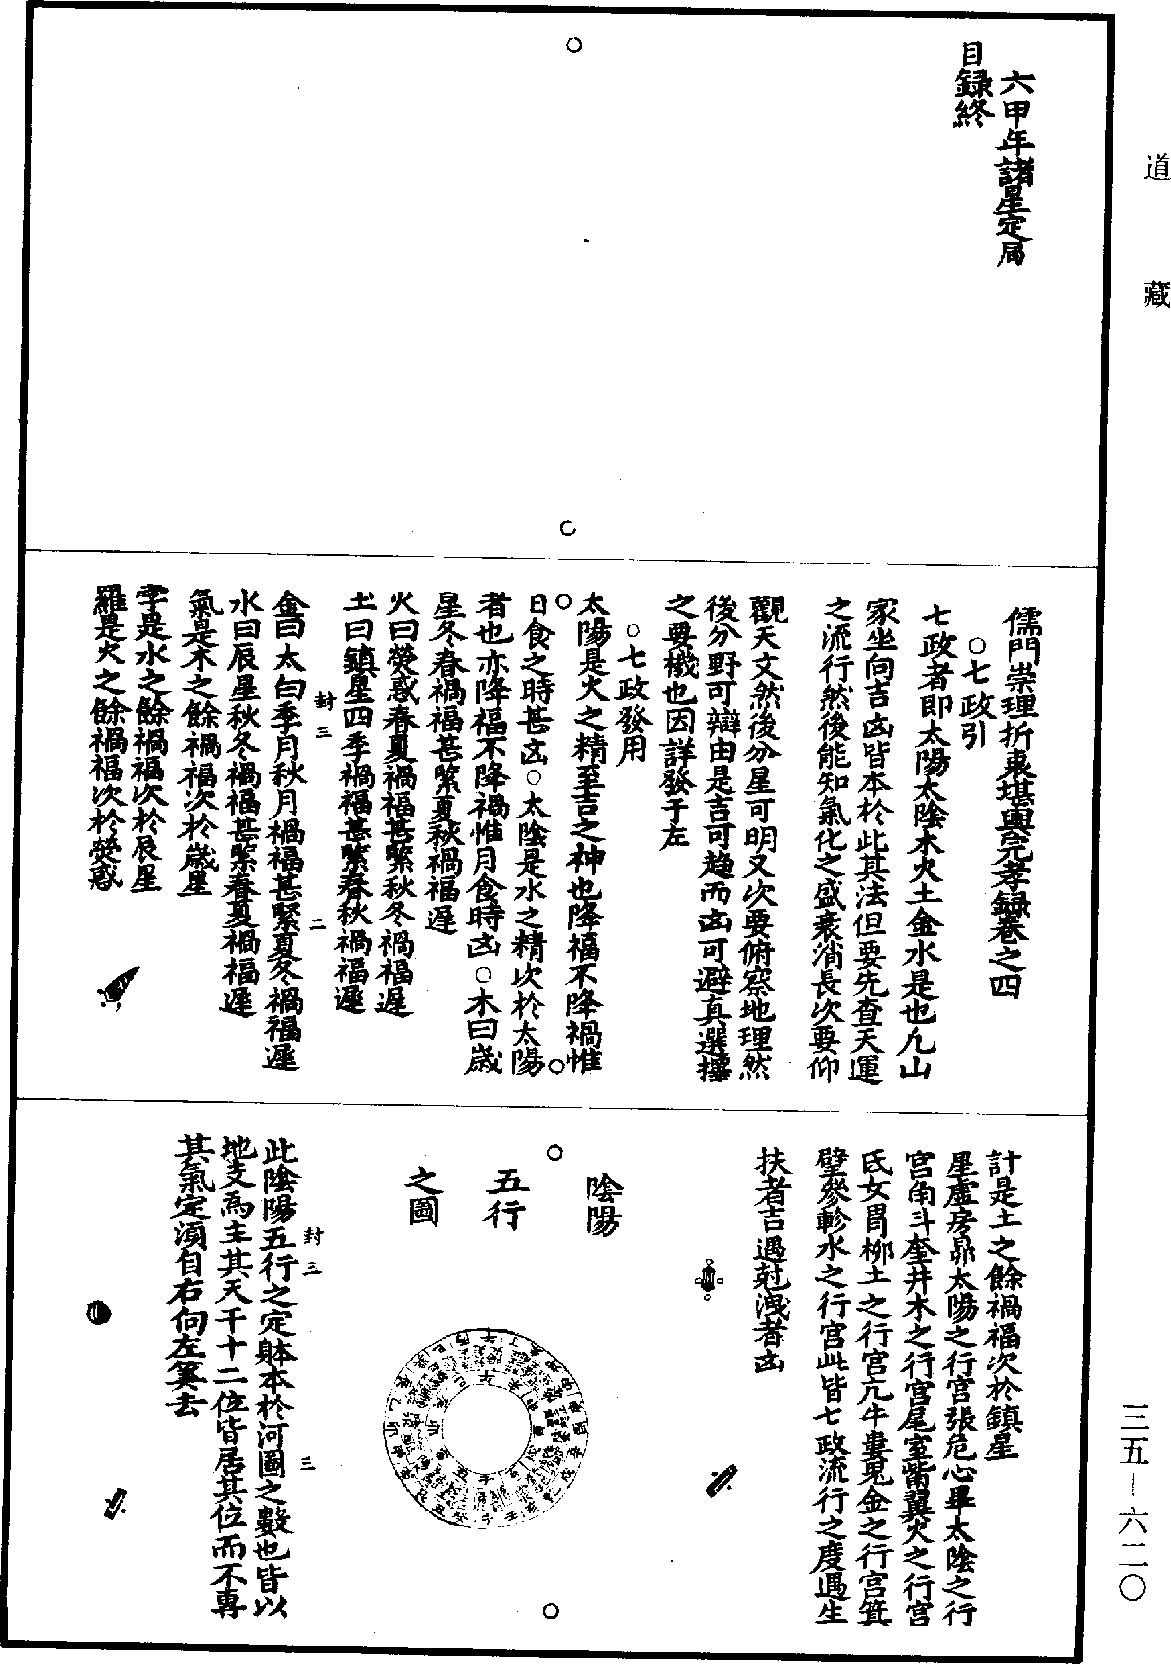 道藏
六甲年諸星定局
目録終
儒門崇理折衷堪輿完孝録卷之四
○七政引
七政者即太陽太陰木火土金水是也凢山
家坐向吉凶皆本於此其法但要先查天運
之流行然後能知氣化之盛衰消長次要仰
觀天文然後分星可明又次要俯察地理然
後分野可辯由是吉可趨而凶可避真選擇
之要機也因詳發于左
○七政發用
太陽是火之精至吉之神也降福不降禍惟
日食之時甚凶○太陰是水之精次於太陽
者也亦降福不降禍惟月食時凶○木曰歲
星冬春禍福甚緊夏秋禍福遲
火曰熒惑春夏禍福甚緊秋冬禍福遲
土曰鎮星四季禍福甚緊春秋禍福遲
封三 二
金曰太白季月秋月禍福甚緊夏冬禍福遲
水曰辰星秋冬禍福甚緊春夏禍福遲
氣是木之餘禍福次於歲星
孛是水之餘禍福次於辰星
羅是火之餘禍福次於熒惑
計是土之餘禍福次於鎮星
星虛房昴太陽之行宮張危心畢太陰之行
宮角斗奎井木之行宮尾室觜翼火之行宮
氐女胃柳土之行宮亢牛婁鬼金之行宮箕
壁參軫水之行宮此皆七政流行之度遇生
扶者吉遇尅洩者凶
陰陽
五行
之圖
封三 三
此陰陽五行之定躰本於河圖之數也皆以
地支爲主其天干十二位皆居其位而不專
其氣定須自右向左筭去
三五—六二〇